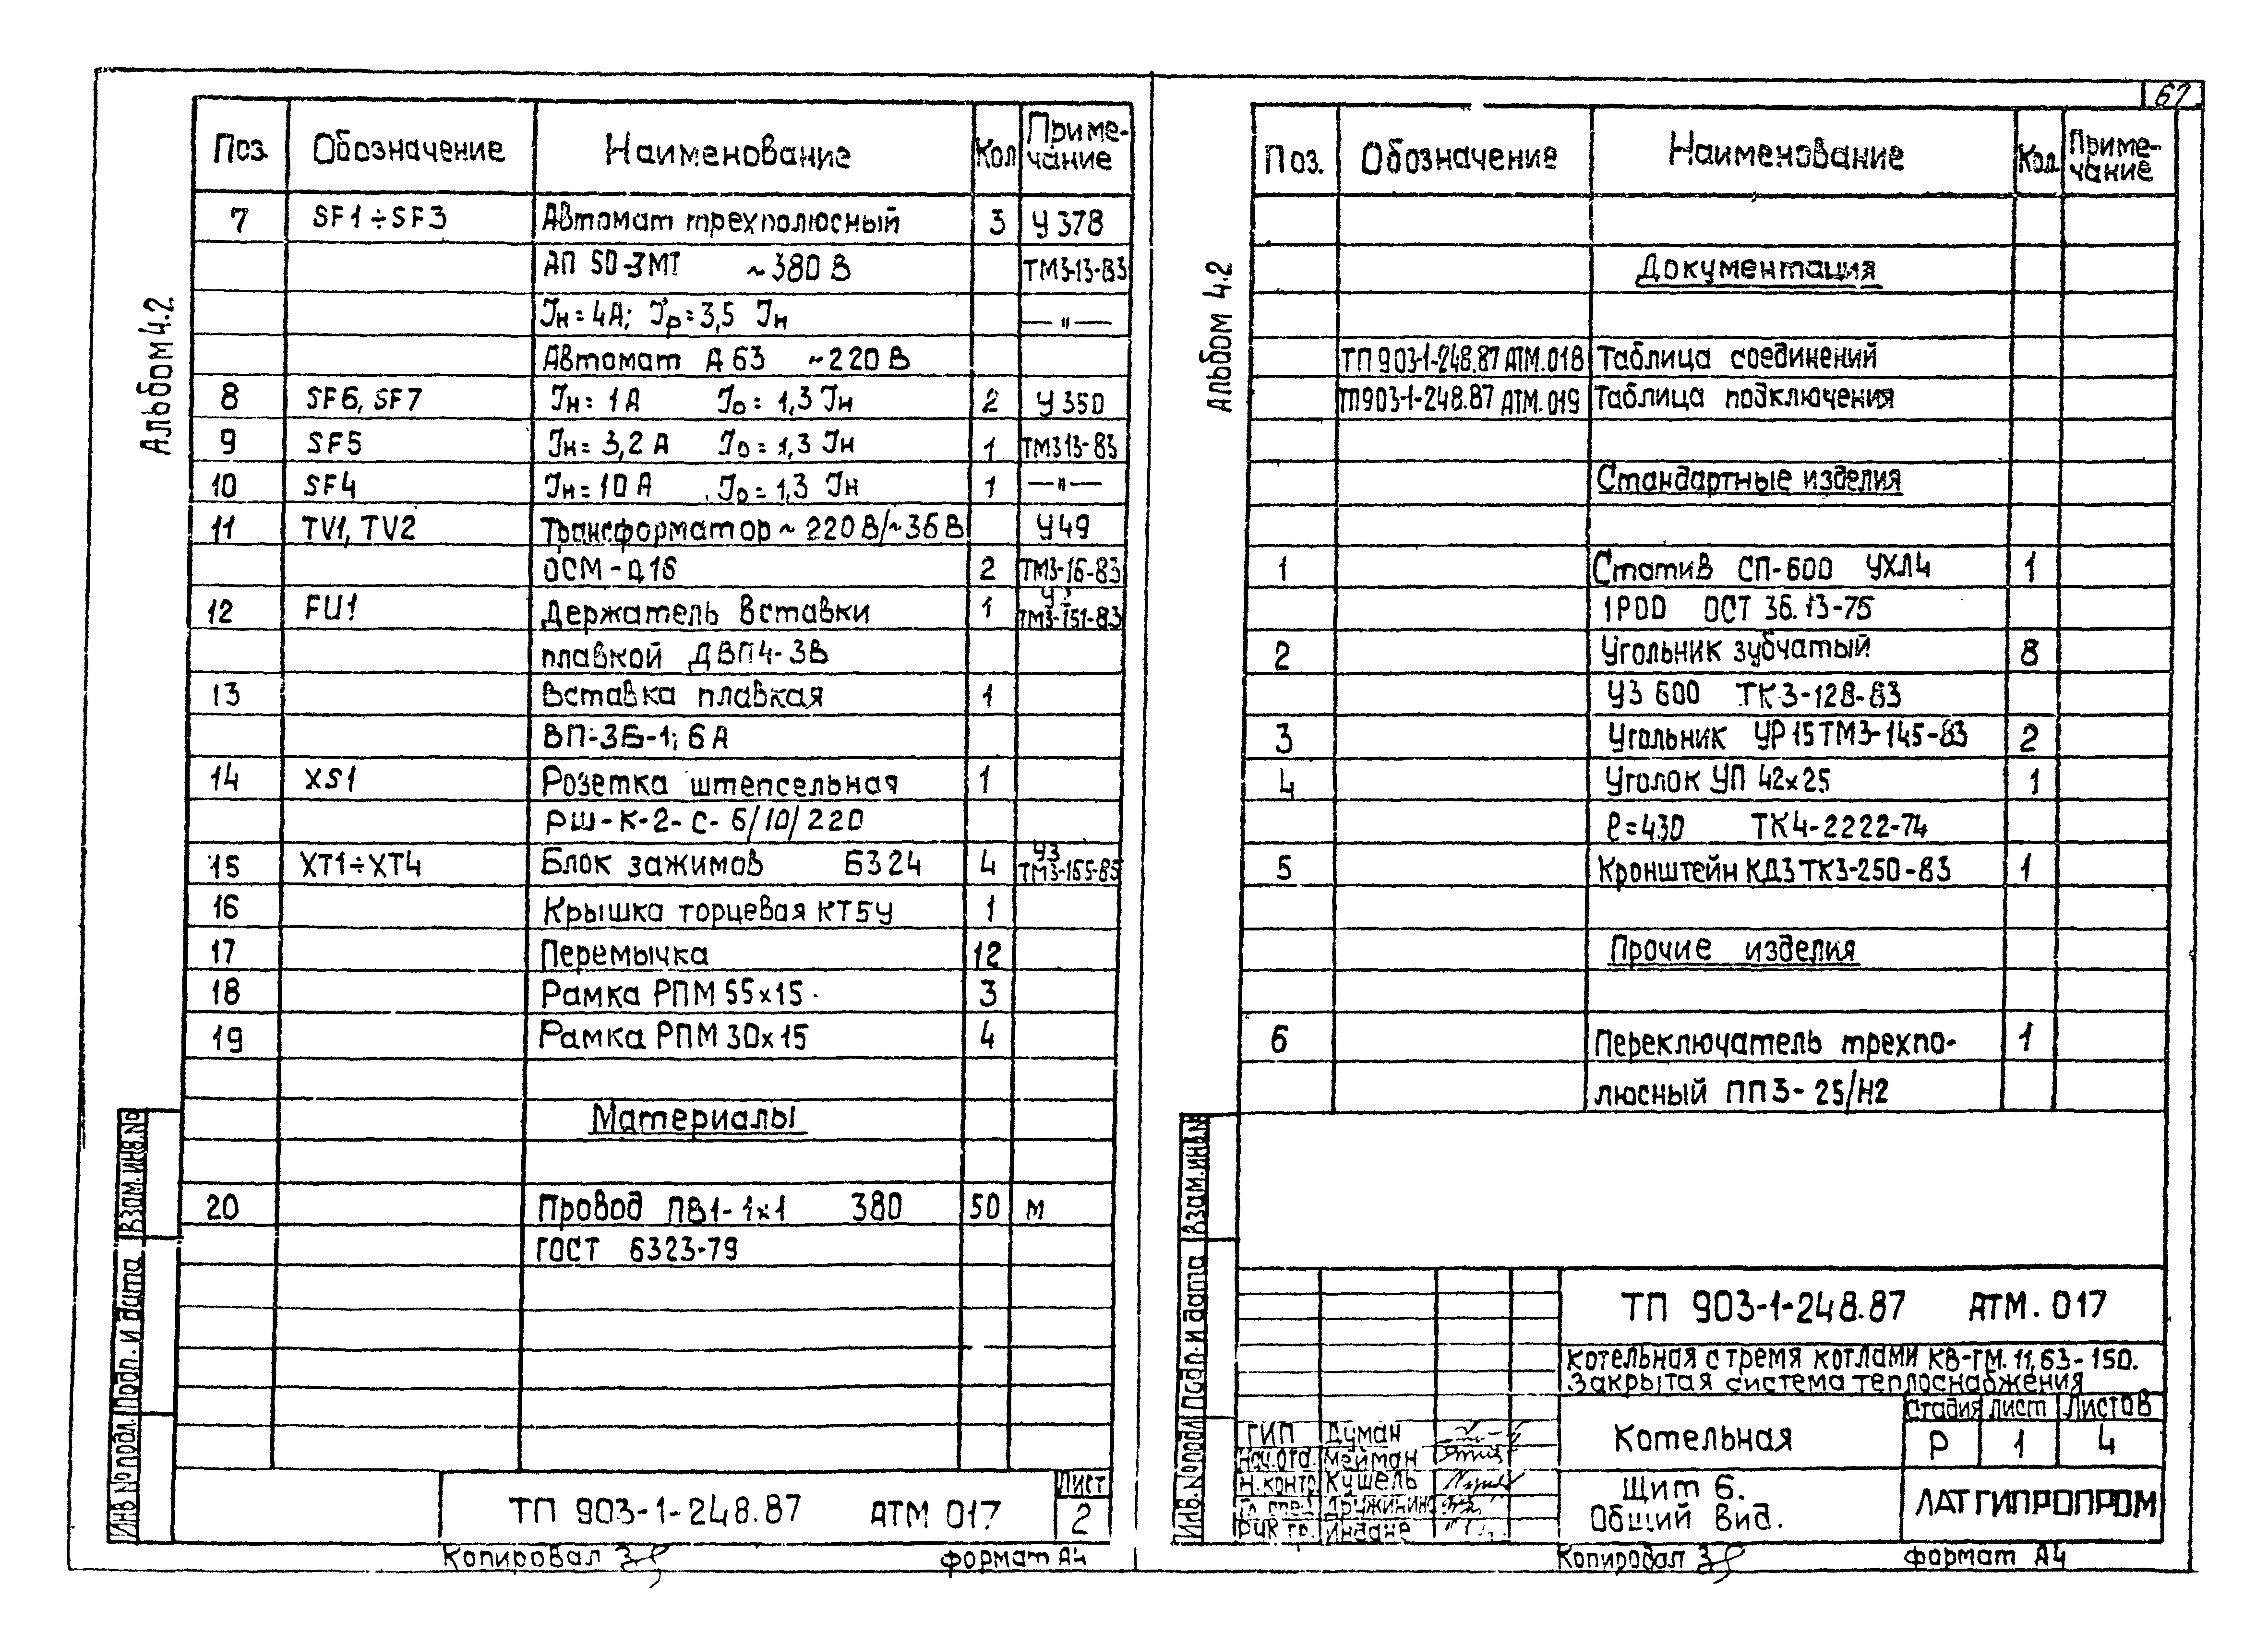 67
Альбом 4.2
Поз. Обозначение Наименование Кол Приме-
чание
7 SF1÷SF3 Автомат трехполюсный 3 У 378
АП 50-3МТ ~380 В ТМ3-13-83
Iн = 4А; Iр = 3,5 Iн —"—
Автомат А 63 ~220 В
8 SF6, SF7 Iн = 1А Iо = 1,3 Iн 2 У 350
9 SF5 Iн = 3,2 А Iо = 1,3 Iн 1 ТМ3 13-83
10 SF4 Iн = 10 А Iо = 1,3 Iн 1 —"—
11 TV1, TV2 Трансформатор ~ 220 В/~36 В У49
ОСМ-0,16 2 ТМ3-16-83
12 FU1 Держатель вставки 1 У3
ТМ3-151-83
плавкой ДВП4-3В
13 Вставка плавкая 1
ВП-3Б-1; 6 А
14 XS1 Розетка штепсельная 1
РШ-К-2-С-6/10/220
15 XT1÷XT4 Блок зажимов БЗ 24 4 У3
ТМ3-165-85
16 Крышка торцевая КТ5У 1
17 Перемычка 12
18 Рамка РПМ 55х15 3
19 Рамка РПМ 30х15 4
Материалы
20 Провод ПВ1-1х1 380 50 м
ГОСТ 6323-79
Взам. инв. №
Подп. и дата
Инв № подл.
ТП 903-1-248.87 АТМ 017
Лист
2
Копировал
формат А4
Альбом 4.2
Поз. Обозначение Наименование Кол. Приме-
чание
Документация
ТП 903-1-248.87 АТМ.018 Таблица соединений
ТП903-1-248.87 АТМ.019 Таблица подключения
Стандартные изделия
1 Статив СП-600 УХЛ4 1
1Р00 ОСТ 36.13-76
2 Угольник зубчатый 8
УЗ 600 ТК 3-128-83
3 Угольник УР 15 ТМ3-145-83 2
4 Уголок УП 42х25 1
ℓ=430 ТК4-2222-74
5 Кронштейн КД3 ТК3-250-83 1
Прочие изделия
6 Переключатель трехпо- 1
люсный ПП3-25/Н2
Взам. инв.№
Подп. и дата
Инв. № подл
ТП 903-1-248.87 АТМ.017
Котельная с тремя котлами КВ-ГМ.11,63-150.
Закрытая система теплоснабжения
ГИП Думан
Нач.отд. Мейман
Н.контр Кушель
Гл. спец. Дружинина
Рук гр. Индане
Котельная
Стадия Лист Листов
Р 1 4
Щит 6.
Общий вид.
ЛАТГИПРОПРОМ
Копировал
формат А4